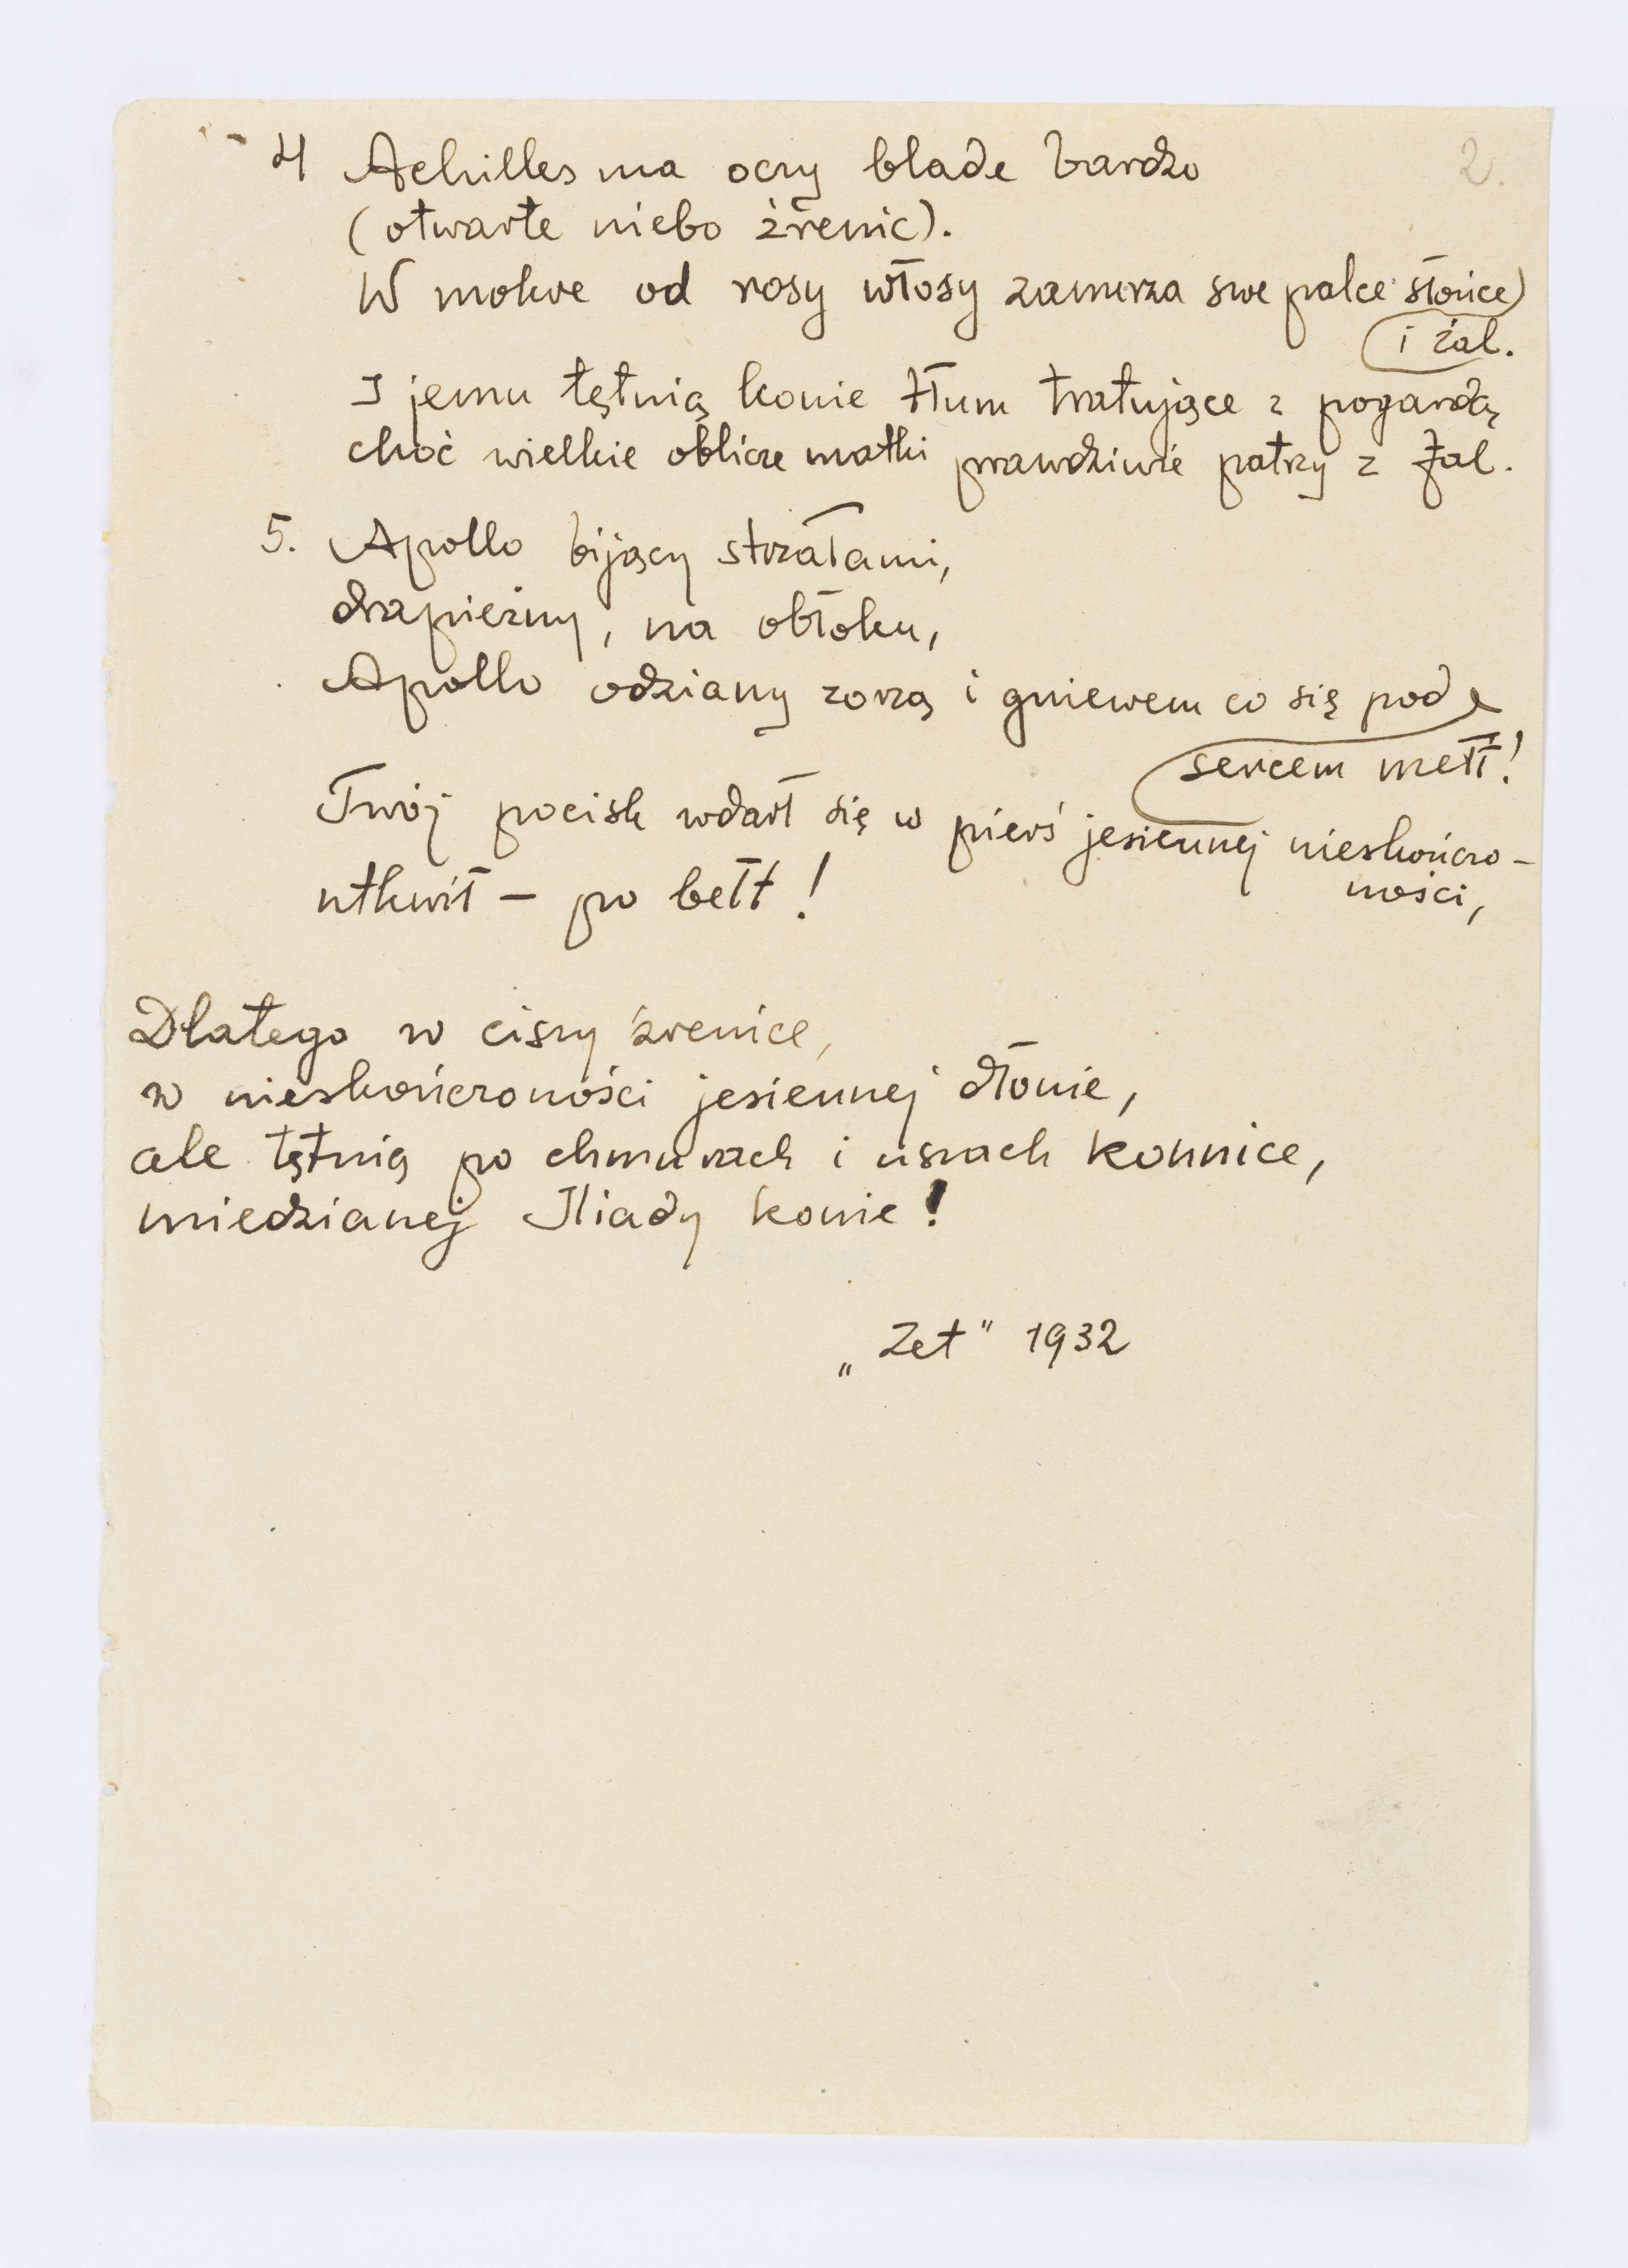 2.
4 Achilles ma oczy blade bardzo
(otwarte niebo źrenic).
W mokre od rosy włosy zanurza swe palce słońce
i żal.
I jemu tętnią konie tłum tratujące z pogardą
choć wielkie oblicze matki prawdziwie patrzy z fal.
5. Apollo bijący strzałami,
drapieżny, na obłoku,
Apollo odziany zorzą i gniewem co się pod
sercem mełł!
Twój pocisk wdarł się w pierś jesiennej nieskończo-
ności,
utkwił – po bełt!
Dlatego w ciszy źrenice,
w nieskończoności jesiennej dłonie,
ale tętnią po chmurach i uszach konnice,
miedzianej Iliady konie!
„Zet" 1932